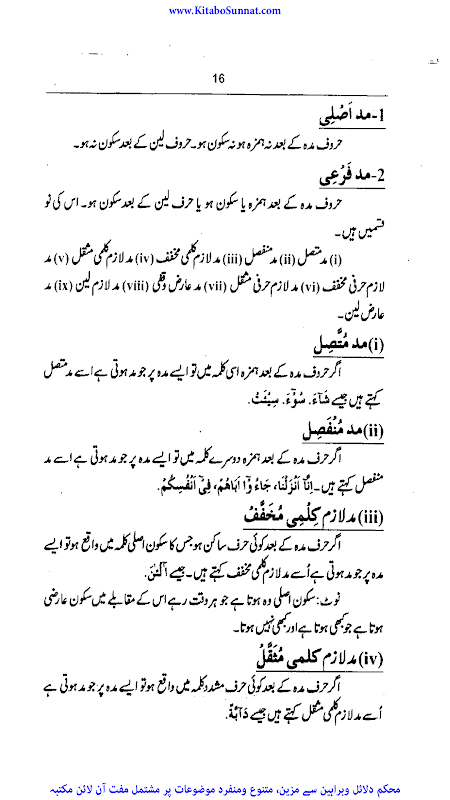 www.KitaboSunnat.com
16
1-مد اَصْلِی
حروف مدہ کے بعد نہ ہمزہ ہو نہ سکون ہو۔ حروف لین کے بعد سکون نہ ہو۔
2-مد فَرْعِی
حروف مدہ کے بعد ہمزہ یا سکون ہو یا حرف لین کے بعد سکون ہو۔ اس کی نو
قسمیں ہیں۔
(i) مد متصل (ii) مد منفصل (iii) مد لازم کلمی مخفف (iv) مد لازم کلمی مثقل (v) مد
لازم حرفی مخفف (vi) مد لازم حرفی مثقل (vii) مد عارض وقفی (viii) مد لازم لین (ix) مد
عارض لین۔
(i) مد مُتَّصِل
اگر حروف مدہ کے بعد ہمزہ اسی کلمہ میں تو ایسے مدہ پر جو مد ہوتی ہے اسے مد متصل
کہتے ہیں جیسے شَآءَ. سُوْٓءَ. سِیْٓئَتْ.
(ii) مد مُنْفَصِل
اگر حرف مدہ کے بعد ہمزہ دوسرے کلمہ میں تو ایسے مدہ پر جو مد ہوتی ہے اسے مد
منفصل کہتے ہیں۔ اِنَّآ اَنْزَلْنَا، جَاءُ وْٓا اَبَاهُمْ، فِیْٓ اَنْفُسِکُمْ.
(iii) مد لازم کِلْمِی مُخَفَّفْ
اگر حرف مدہ کے بعد کوئی حرف ساکن ہو جس کا سکون اصلی کلمہ میں واقع ہو تو ایسے
مدہ پر جو مد ہوتی ہے اُسے مد لازم کلمی مخفف کہتے ہیں۔ جیسے آٰلْئٰنَ.
نوٹ: سکون اصلی وہ ہوتا ہے جو ہر وقت رہے اس کے مقابلے میں سکون عارضی
ہوتا ہے جو کبھی ہوتا ہے اور کبھی نہیں ہوتا۔
(iv) مد لازم کلمی مُثَقَّلْ
اگر حرف مدہ کے بعد کوئی حرف مشدد کلمہ میں واقع ہو تو ایسے مدہ پر جو مد ہوتی ہے
اُسے مد لازم کلمی مثقل کہتے ہیں جیسے دَآبَّةً.
محکم دلائل وبراہین سے مزین، متنوع ومنفرد موضوعات پر مشتمل مفت آن لائن مکتبہ